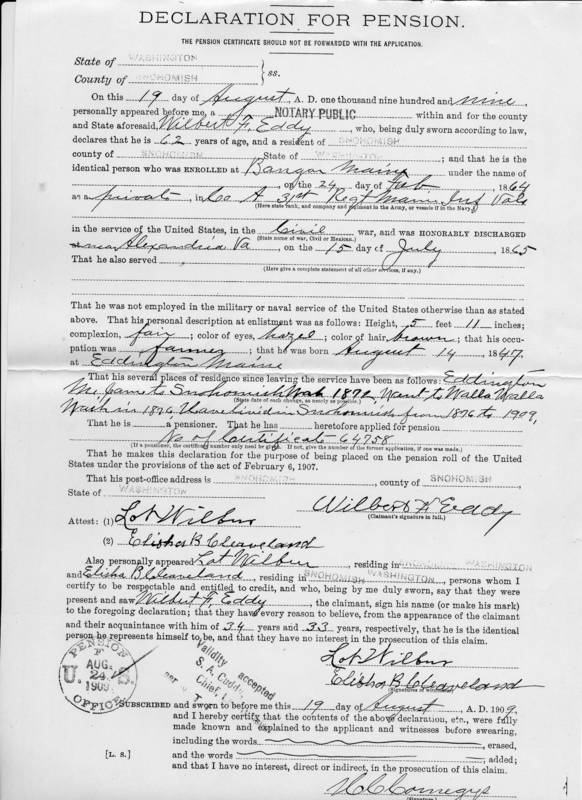 DECLARATION FOR PENSION.
THE PENSION CERTIFICATE SHOULD NOT BE FORWARDED WITH THE APPLICATION.
State of WASHINGTON
County of SNOHOMISH } ss.
On this 19 day of August, A. D. one thousand nine hundred and nine,
personally appeared before me, a NOTARY PUBLIC within and for the county
and State aforesaid, Wilbert F. Eddy, who, being duly sworn according to law,
declares that he is 62 years of age, and a resident of SNOHOMISH
county of SNOHOMISH, State of WASHINGTON; and that he is the
identical person who was ENROLLED at Bangor Maine under the name of
, on the 24 day of Feb, 1864
as a private, in Co A 31st Regt Maine Inf Vols
(Here state rank, and company and regiment in the Army, or vessels if in the Navy.)
in the service of the United States, in the Civil war, and was HONORABLY DISCHARGED
(State name of war, Civil or Mexican.)
near Alexandria Va, on the 15 day of July, 1865
That he also served
(Here give a complete statement of all other services, if any.)
That he was not employed in the military or naval service of the United States otherwise than as stated
above. That his personal description at enlistment was as follows: Height, 5 feet 11 inches;
complexion, fair; color of eyes, hazel; color of hair, brown; that his occu-
pation was farmer; that he was born August 14 1847,
at Eddington Maine
That his several places of residence since leaving the service have been as follows: Eddington
Me, Came to Snohomish Wash 1872, Went to Walla Walla
(State date of each change, as nearly as possible.)
Wash in 1876, Have lived in Snohomish from 1876 to 1909,
That he is a pensioner. That he has heretofore applied for pension
No of Certificate 64758
(If a pensioner, the certificate number only need be given. If not, give the number of the former application, if one was made.)
That he makes this declaration for the purpose of being placed on the pension roll of the United
States under the provisions of the act of February 6, 1907.
That his post-office address is SNOHOMISH, county of SNOHOMISH,
State of WASHINGTON
Wilbert F Eddy
(Claimant's signature in full.)
Attest: (1) Lot Wilbur
(2) Elisha B Cleaveland
Also personally appeared Lot Wilbur, residing in SNOHOMISH WASHINGTON
and Elisha B Cleaveland, residing in SNOHOMISH WASHINGTON, persons whom I
certify to be respectable and entitled to credit, and who, being by me duly sworn, say that they were
present and saw Wilbert F. Eddy, the claimant, sign his name (or make his mark)
to the foregoing declaration; that they have every reason to believe, from the appearance of the claimant
and their acquaintance with him of 34 years and 33 years, respectively, that he is the identical
person he represents himself to be, and that they have no interest in the prosecution of this claim.
Lot Wilbur
Elisha B Cleaveland
(Signatures of witnesses.)
U. S. PENSION OFFICE
AUG. 24, 1909.
Validity accepted
S. A. Cuddy,
Chief,
per
SUBSCRIBED and sworn to before me this 19 day of August, A. D. 1909.
and I hereby certify that the contents of the above declaration, etc., were fully
made known and explained to the applicant and witnesses before swearing,
including the words, erased,
[L. S.] and the words, added;
and that I have no interest, direct or indirect, in the prosecution of this claim.
Comegys
(Signature.)